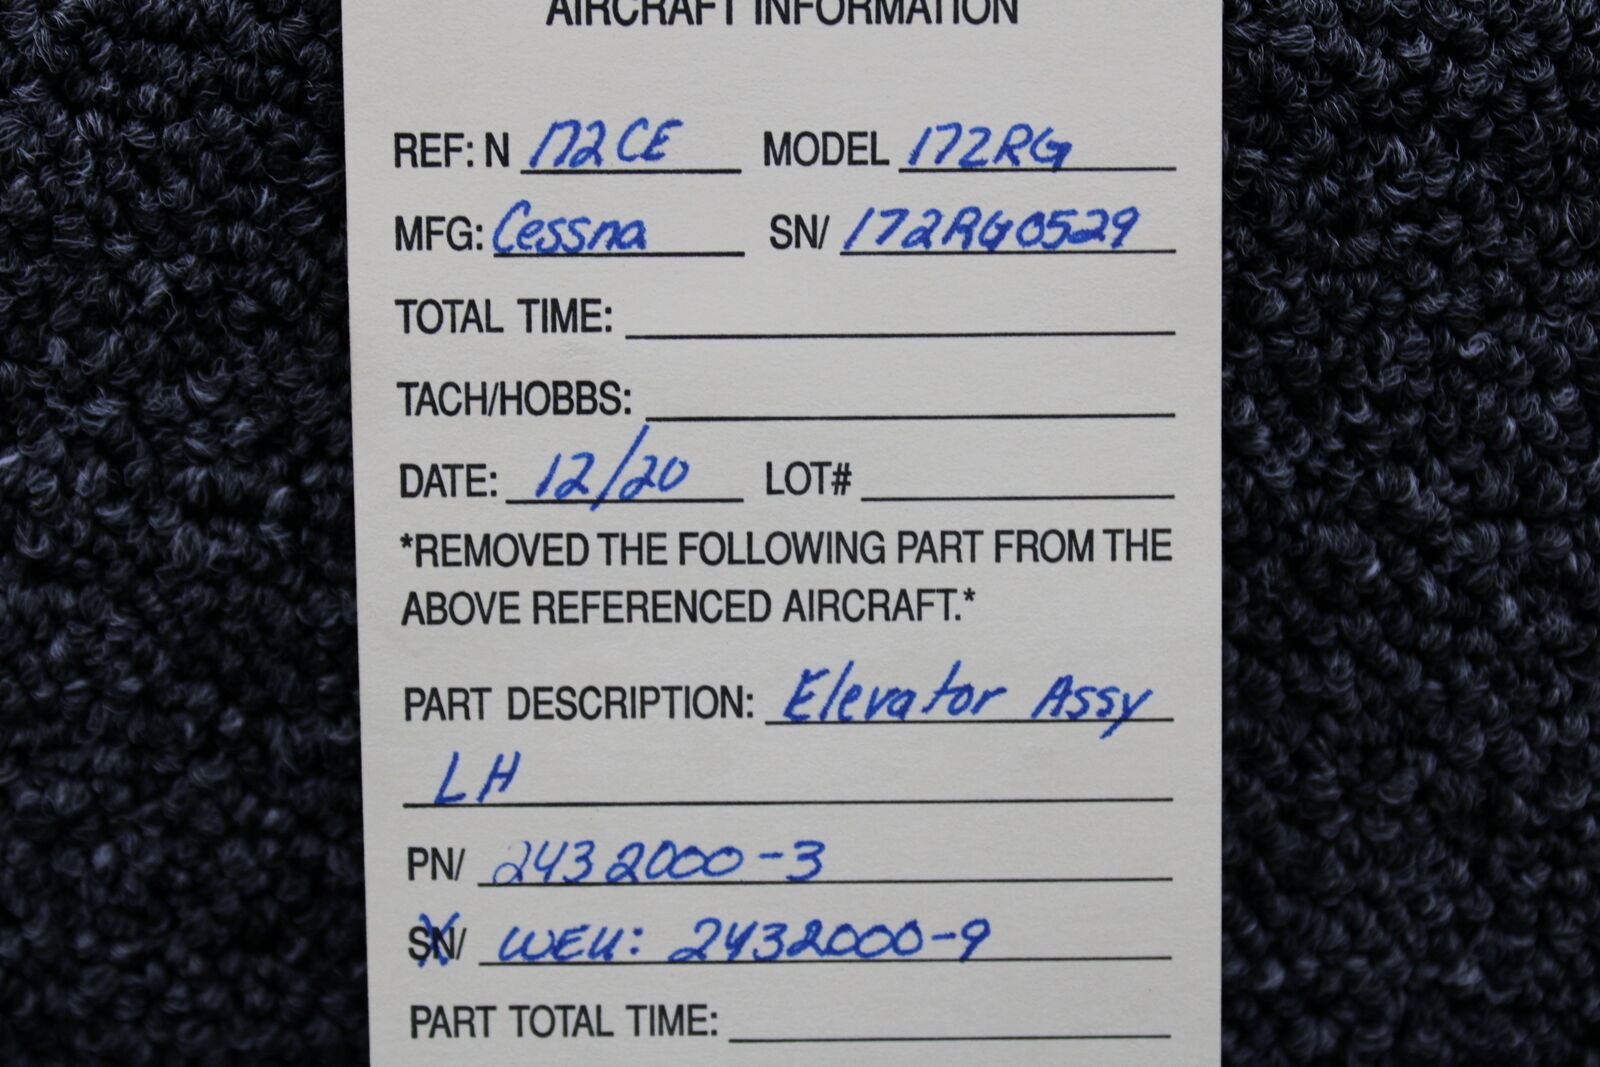 AIRCRAFT INFORMATION
REF: N 172CE MODEL 172RG
MFG: Cessna SN/ 172RG0529
TOTAL TIME:
TACH/HOBBS:
DATE: 12/20 LOT#
*REMOVED THE FOLLOWING PART FROM THE
ABOVE REFERENCED AIRCRAFT.*
PART DESCRIPTION: Elevator Assy
LH
PN/ 2432000-3
SN/ WEU: 2432000-9
PART TOTAL TIME: